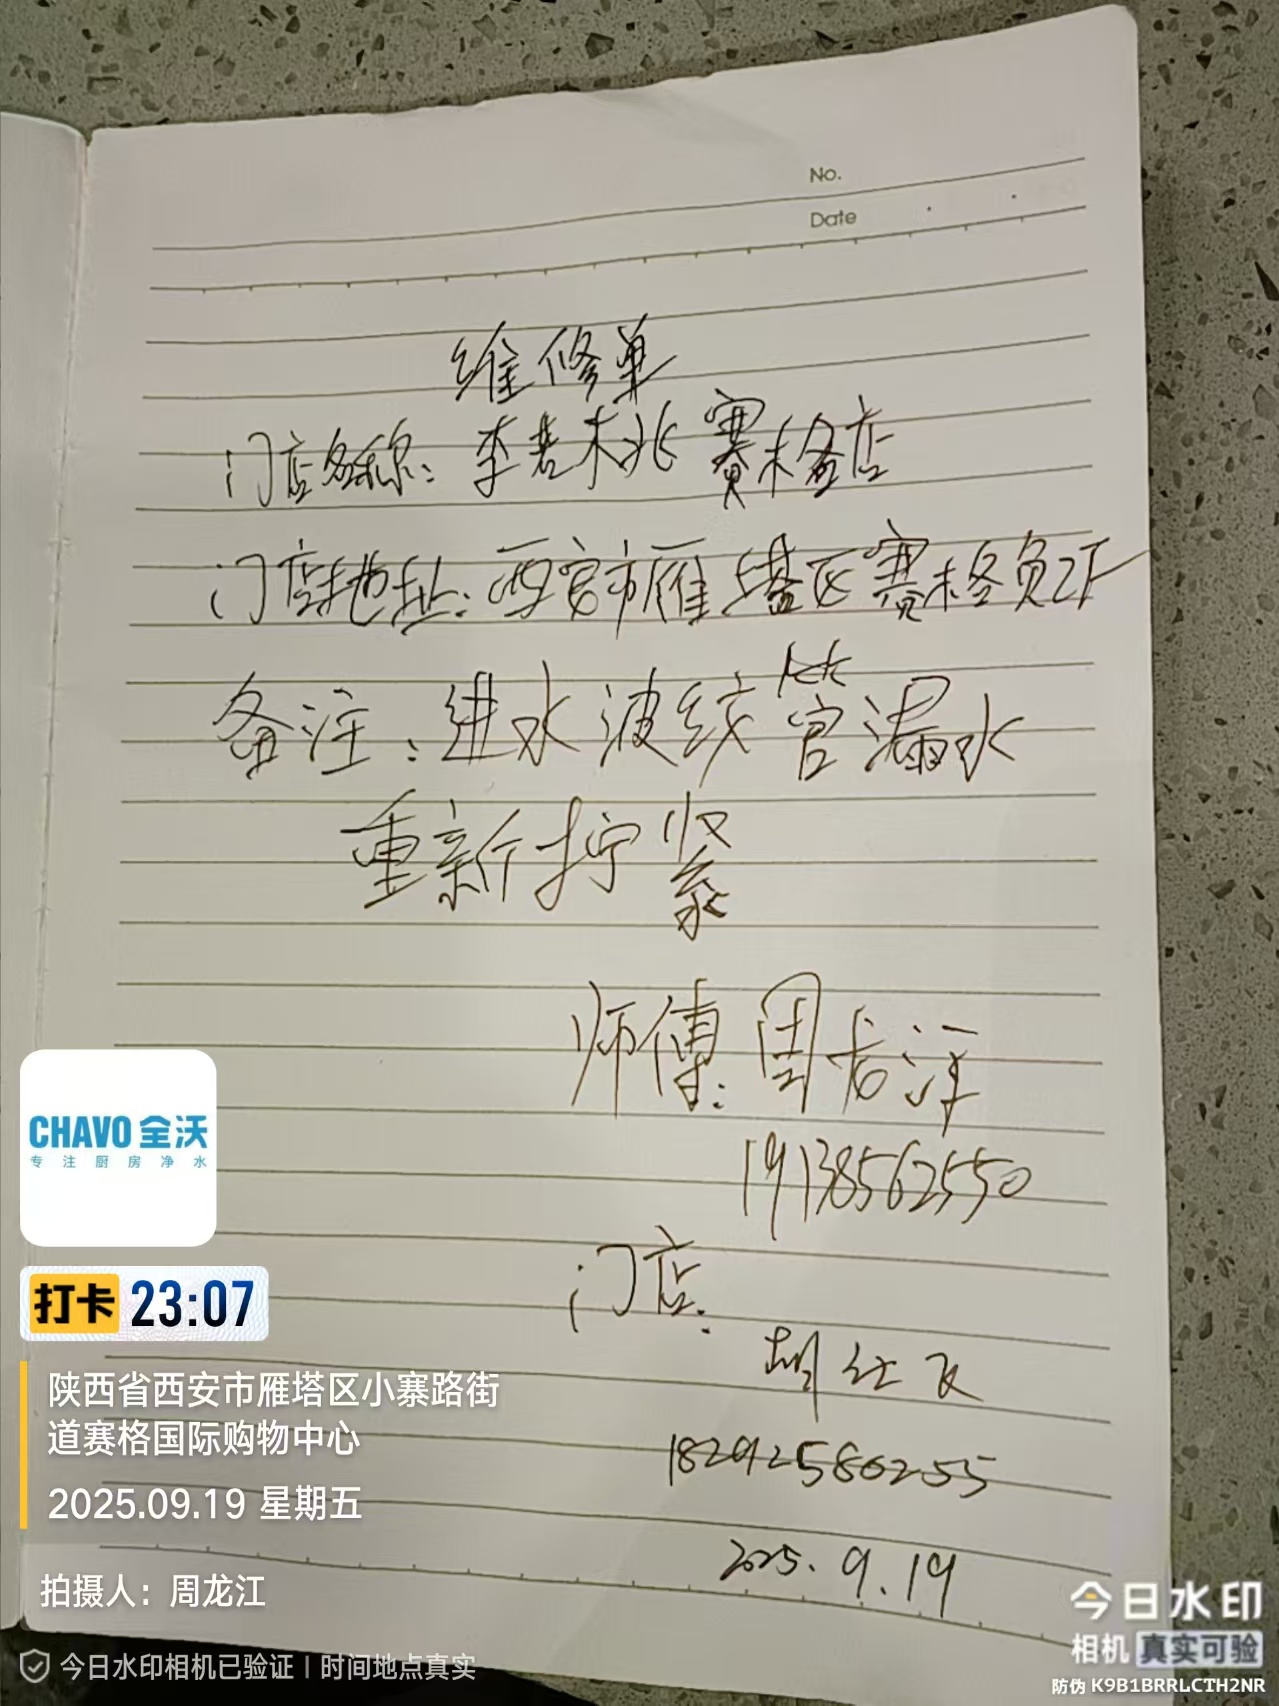 No.
Date
维修单
门店名称：李若木北赛格店
门店地址：西安市雁塔区赛格负2F
备注：进水波纹管漏水
重新拧紧
师傅：周龙江
19138562550
门店：
胡
18292586255
2025.9.19
CHAVO全沃
专注厨房净水
打卡 23:07
陕西省西安市雁塔区小寨路街
道赛格国际购物中心
2025.09.19 星期五
拍摄人：周龙江
今日水印相机已验证 | 时间地点真实
今日水印
相机 真实可验
防伪 K9B1BRRLCTH2NR